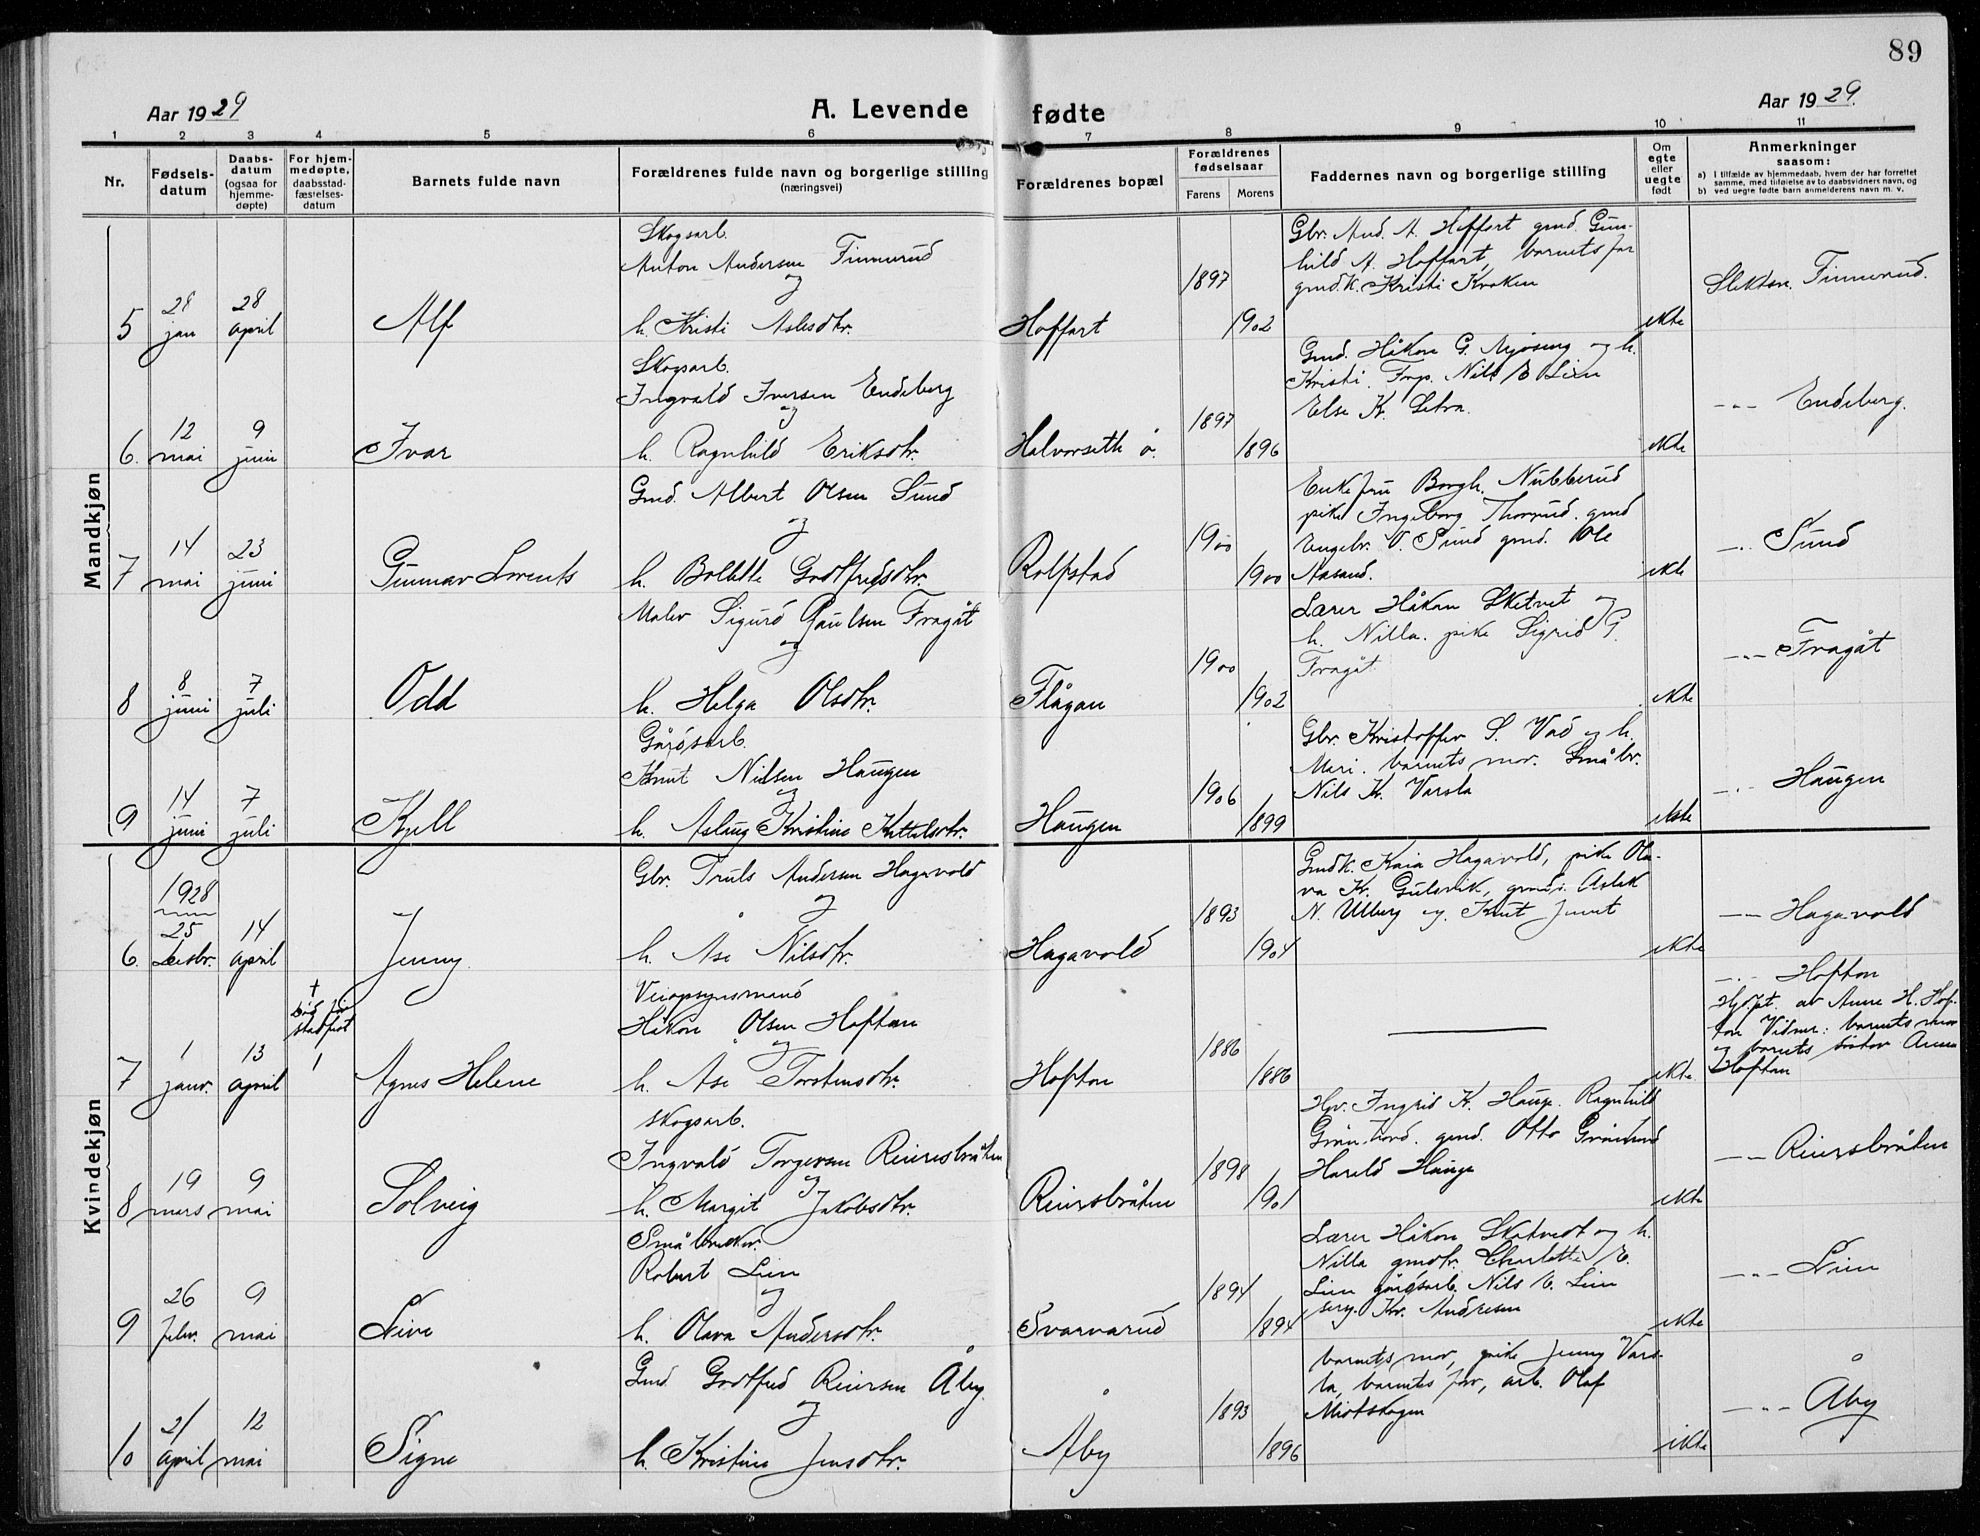 89
Aar 1929
A. Levende fødte
Aar 1929.
1 2 3 4 5 6 7 8 9 10 11
Nr.
Fødsels-
datum
Daabs-
datum
(ogsaa for
hjemme-
døpte)
For hjem-
medøpte,
daabsstad-
fæstelses-
datum
Barnets fulde navn
Forældrenes fulde navn og borgerlige stilling
(næringsvei)
Forældrenes bopæl
Forældrenes
fødselsaar
Farens Morens
Faddernes navn og borgerlige stilling
Om
egte
eller
uegte
født
Anmerkninger
saasom:
a) I tilfælde av hjemmedaab, hvem der har forrettet
samme, med tilføielse av to daabsvidners navn, og
b) ved uegte fødte barn anmelderens navn m. v.
Mandkjøn
5
28
jan
28
april
Alf
Skogsarb.
Anton Andersen Finnerud
og
h. Kristi Aslesdtr.
Hoffart
1897
1902
Gbr. And. A. Hoffart gmd. Gun-
hild A. Hoffart, barnets far
gmdk. Kristi Kroken
ekte
Slektsn. Finnerud.
6.
12
mai
9
juni
Ivar
Skogsarb.
Ingvald Iversen Endeberg
og
h. Ragnhild Eriksdtr.
Halvorseth ø.
1897
1896
Gmd. Håkon G. Mjøsing og h.
Kristi. Forp. Nils E Lien
Else K.
ekte
-"- Endeberg.
7
14
mai
23
juni
Gunnar Lorents
Gmd. Albert Olsen Sund
og
h. Bolette Godtfredsdtr.
Rolfstad
1900
1900
Enkefru Borgh. Nubberud
pike Ingeborg Thorrud. gmd
Engebr. O. Sund gmd. Ole
Aasand.
ekte
-"- Sund
8
8
juni
7
juli
Odd
Maler Sigurd Paulsen Fragåt
og
h. Helga Olsdtr.
Flågan
1900
1902
Lærer Håkon Sketvet og
h. Nilla. pike Sigrid P.
Fragåt
ekte
-"- Fragåt
9
14
juni
7
juli
Kjell
Gårdsarb.
Knut Nilsen Haugen
og
h. Aslaug Kristine Kittelsdtr.
Haugen
1906
1899
Gbr. Kristoffer S. Vad og h.
Mari. barnets mor. Småbr.
Nils K. Varsla
ekte
-"- Haugen
Kvindekjøn
6.
1928
25
desbr.
14
april
Jenny
Gbr. Truls Andersen Hagavold
og
h. Åse Nilsdtr.
Hagavold
1893
1904
Gmdk. Kaia Hagavold, pike Ola-
va K. Gulsvik, gmds. Aslak
N. Ulberg og Knut Juvet
ekte
-"- Hagavold
7
1
janr.
13
april
†
død før
stadfest
Agnes Helene
Veiopsynsmand
Håkon Olsen Hoftun
og
h. Åse Torstensdtr.
Hofton
1886
1886
ekte
-"- Hofton
Hjdpt. av Anne H. Hof-
ton Vidner: barnets mor
og barnets søster Anna
Hofton
8
19
mars
9
mai
Solveig
Skogsarb.
Ingvald Torgersen Reiersbråten
og
h. Margit Jakobsdtr.
Reiersbråten
1898
1901
Hv. Ingrid K. Hauge. Ragnhild
gmd. Otto
Harald Hauge
ekte
-"- Reiersbråten
9
26
febr.
9
mai
Live
Småbruker.
Robert Lien
og
h. Olava Andersdtr.
Svarvarud
1894
1894
Lærer Håkon Sketvedt og h.
Nilla gmdtr. Charlotte E.
Lien gårdsarb. Nils E. Lien
serg. Kr. Andresen
ekte
-"- Lien
10
21
april
12
mai
Signe
Gmd. Godtfred Reiersen Åby.
og
h. Kristine Jensdtr.
Åby
1893
1896
barnets mor, pike Jenny Vars-
la, barnets far, arb. Olaf
Mistskogen
ekte
-"- Åby